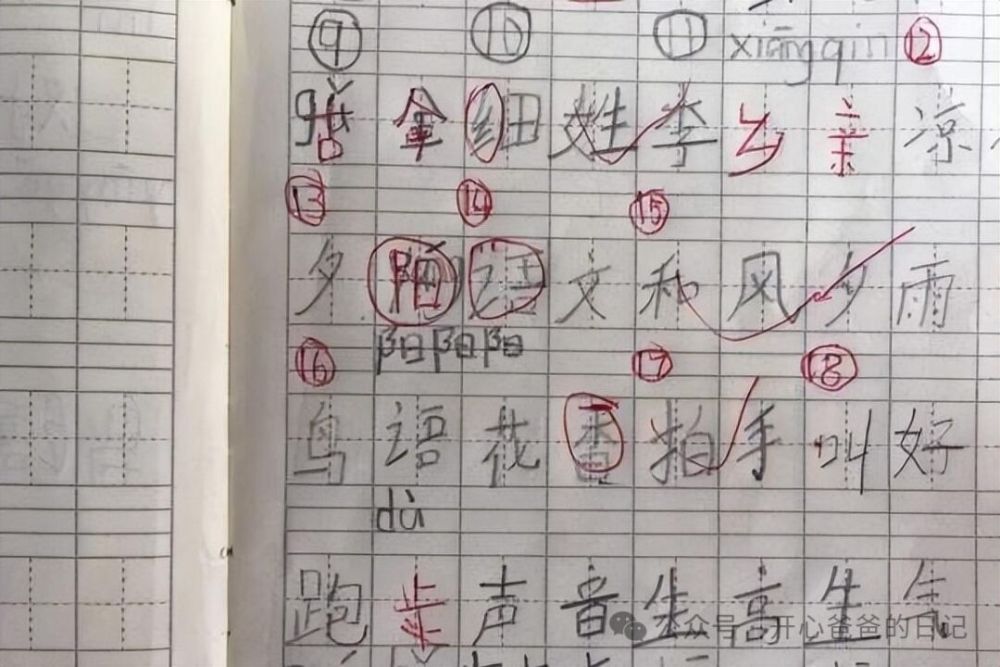 ⑨ ⑩ ⑪ xiāng qin ⑫
拿 细 姓 李 乡 亲 凉
⑬ ⑭ ⑮
夕 阳 语 文 和 风 夕 雨
⑯ 阳 阳 阳 ⑰ ⑱
鸟 语 花 香 拍 手 叫 好
dù
跑 步 声 音 生 高 生 气
公众号:开心爸爸的日记